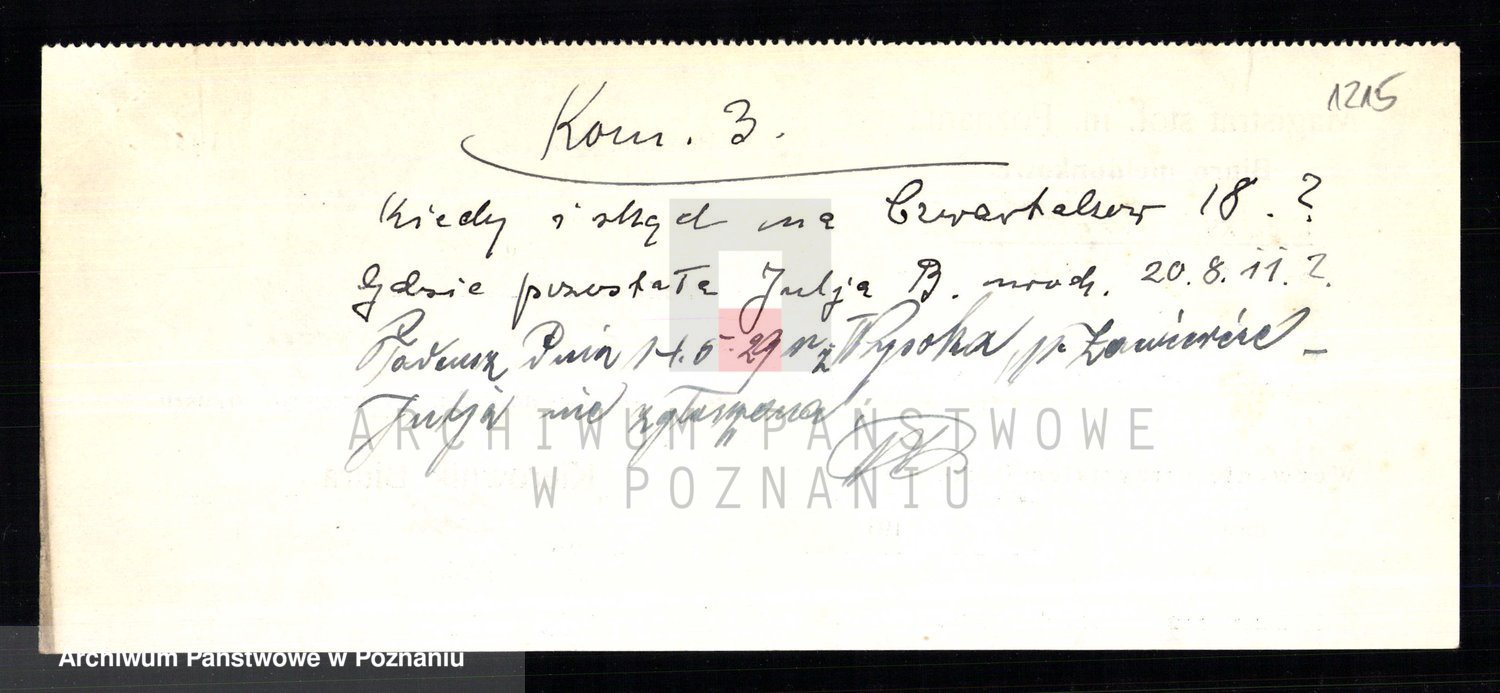 1215
Kom. 3.
Kiedy i skąd na Czwartaków 18. ?
Gdzie pozostała Julja B. urodz. 20.8.11. ?
Tadeusz Dnia 14.5.29 r z Wysoka p. Zawiercie -
Julja nie zgłoszona
ARCHIWUM PAŃSTWOWE
W POZNANIU
Archiwum Państwowe w Poznaniu